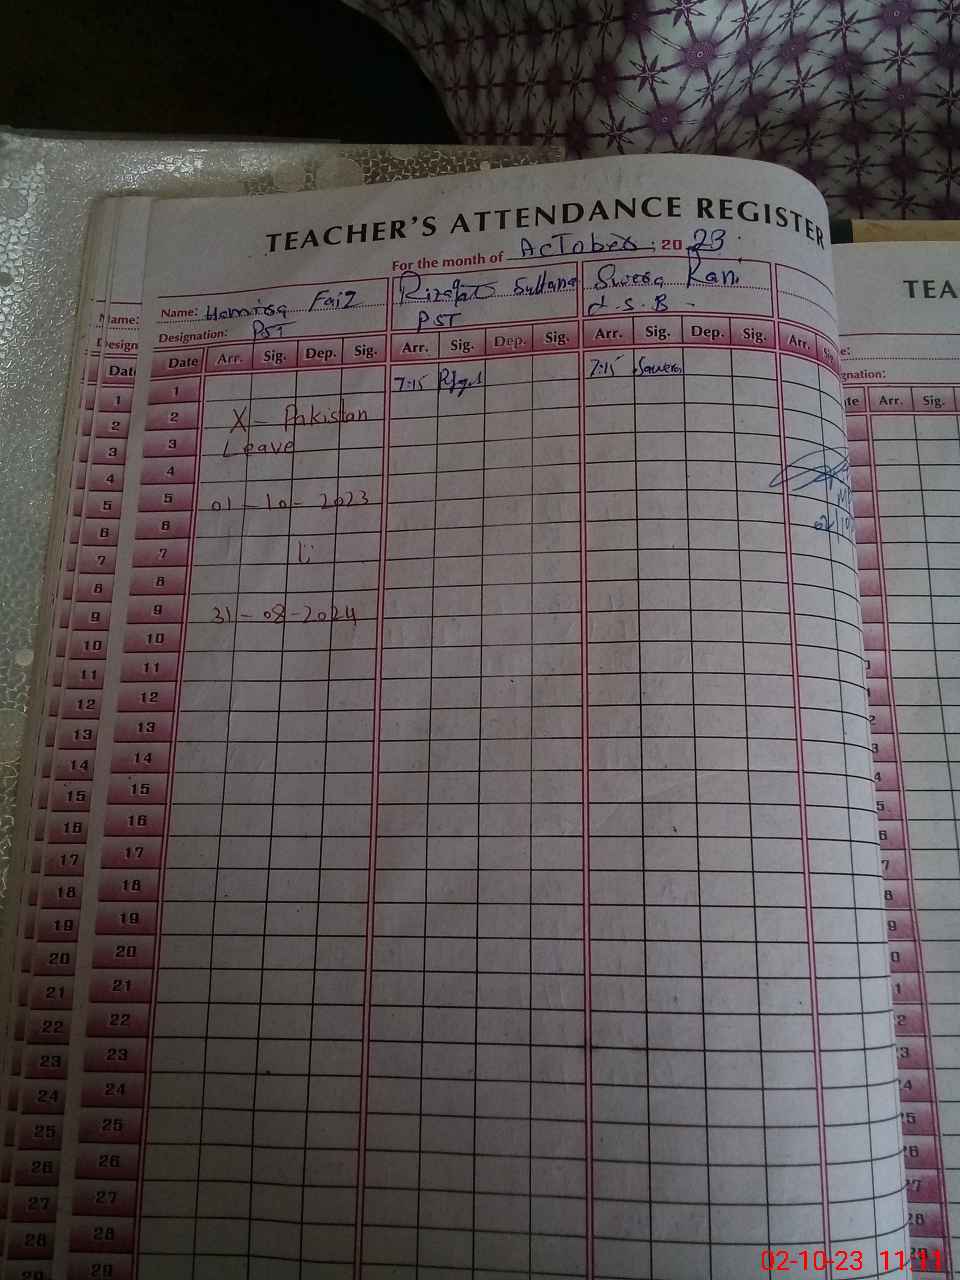 TEACHER'S ATTENDANCE REGISTER
For the month of AcTober, 2023
Name: Faiz
Sultana
Rani
Designation: PST
PST
Date Arr. Sig. Dep. Sig. Arr. Sig. Dep. Sig. Arr. Sig. Dep. Sig. Arr.
1 7:15 7:15
2 X - Pakistan
3 Leave
4
5 01 - 10 - 2023
6
7 تا
8
9 31 - 08 - 2024
10
11
12
13
14
15
16
17
18
19
20
21
22
23
24
25
26
27
28
29
TEA
Arr. Sig.
Name:
Date
1
2
3
4
5
6
7
8
9
10
11
12
13
14
15
16
17
18
19
20
21
22
23
24
25
26
27
28
02-10-23 11:11